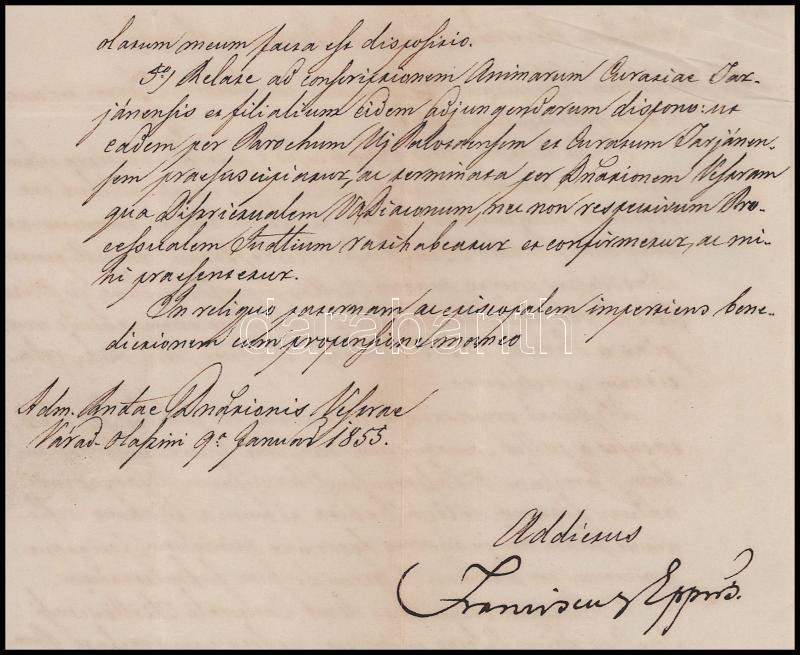 olarum meum facta est dispositio.
5o) Relate ad conscriptionem Animarum Curatiae Tar-
jánensis et filialium eidem adjungendarum dispono: ut
eadem per Parochum Uj Palotaensem et Curatum Tarjánen-
sem praesuscipiatur, ac terminata per Dnationem Vestram
qua Districtualem VADiaconum, nec non respectivum Pro-
cessualem Judlium ratihabeatur et confirmetur, ac mi-
hi praesentetur.
In reliquo paternam ac episcopalem impertiens bene-
dictionem cum propensione maneo
darabanth
Adm. Rndae Dnationis Vestrae
Várad-Olaszini 9a Januar 1855.
Addictus
Franciscus Eppus.